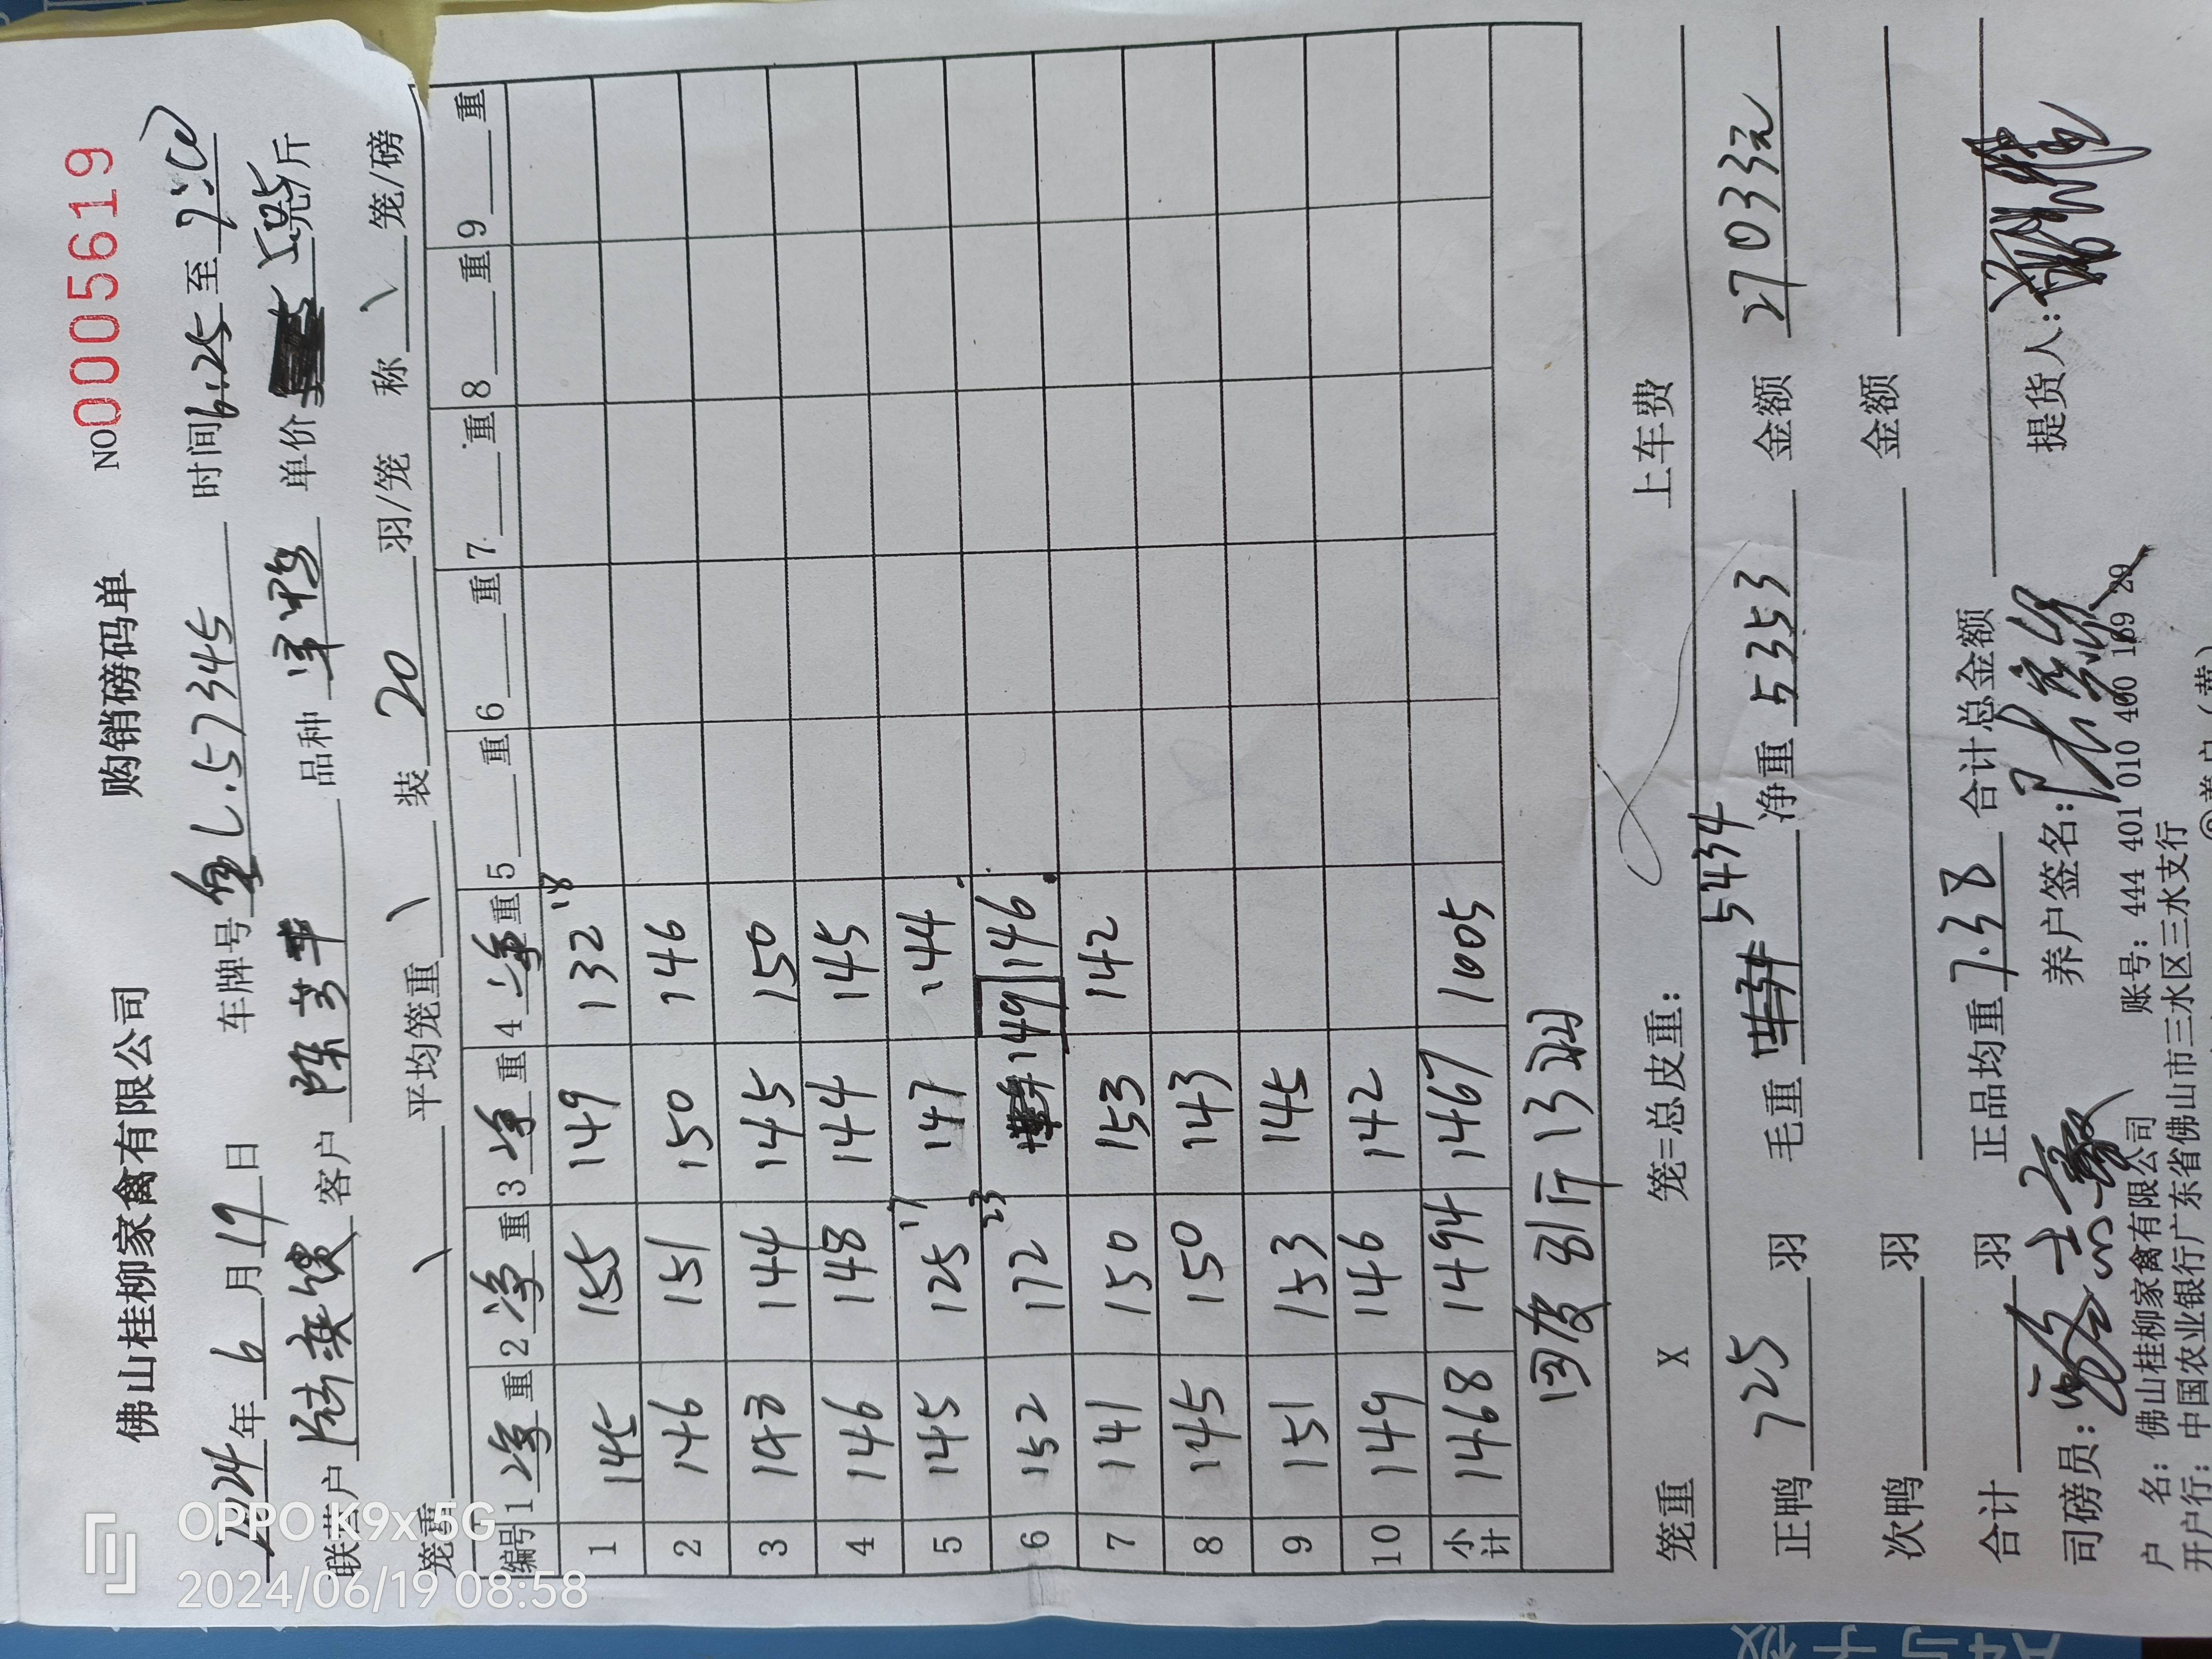 佛山桂柳家禽有限公司 购销磅码单 NO 0005619
2024年6月19日 车牌号 L.57345 时间6:25至7:00
联营户 客户 陈芳平 品种 单价 5.05元/斤
笼重 \ 平均笼重 \ 装 20 羽/笼 称 \ 笼/磅
编号 1 净 重 2 净 重 3 净 重 4 净 重 5 重 6 重 7 重 8 重 9 重
1 145 155 149 132 18
2 146 151 150 146
3 143 144 145 150
4 146 148 144 145
5 145 125 17 147 144
6 152 172 23 149 146
7 141 150 153 142
8 145 150 143
9 151 153 145
10 149 146 142
小计 1468 1494 1467 1005
回皮 81斤 13
笼重 X 笼=总皮重: 上车费
正鸭 725 羽 毛重 5434 净重 5353 金额 27033元
次鸭 羽 金额
合计 羽 正品均重 7.38 合计总金额
司磅员: 养户签名: 提货人:
户 名: 佛山桂柳家禽有限公司 账号: 444 401 010 400 169 29
开户行: 中国农业银行广东省佛山市三水区三水支行
OPPO K9x 5G
2024/06/19 08:58